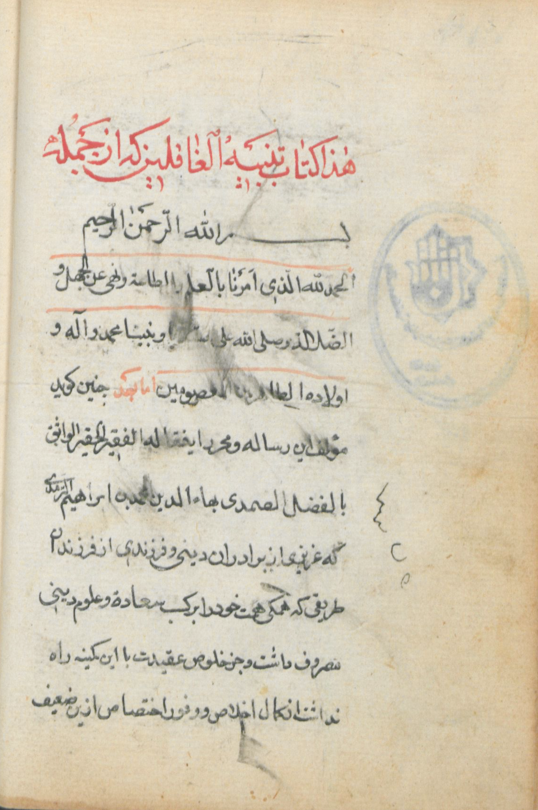 هذا كتاب تنبيه الغافلين كه از جمله
بسم الله الرحمن الرحيم
الحمد لله الذي امرنا بالعلم والطاعة ونهى عن الجهل و
الضلالة وصلى الله على نبينا محمد وآله و
اولاده الطاهرين المعصومين اما بعد چنين كويد
مؤلف اين رساله ومحرر اين مقاله الفقير الحقير الواثق
بالفضل الصمدى بهاء الدين محمد بن ابراهيم
كه عزيزى از برادران دينى وفرزندى از فرزندان
طريقى كه همكى همت خود را بر كسب سعادة وعلوم دينى
مصروف داشت وجز خلوص عقيدت با اين كمينه راه
نداشت از كمال اخلاص ووفور اختصاص ازين ضعيف